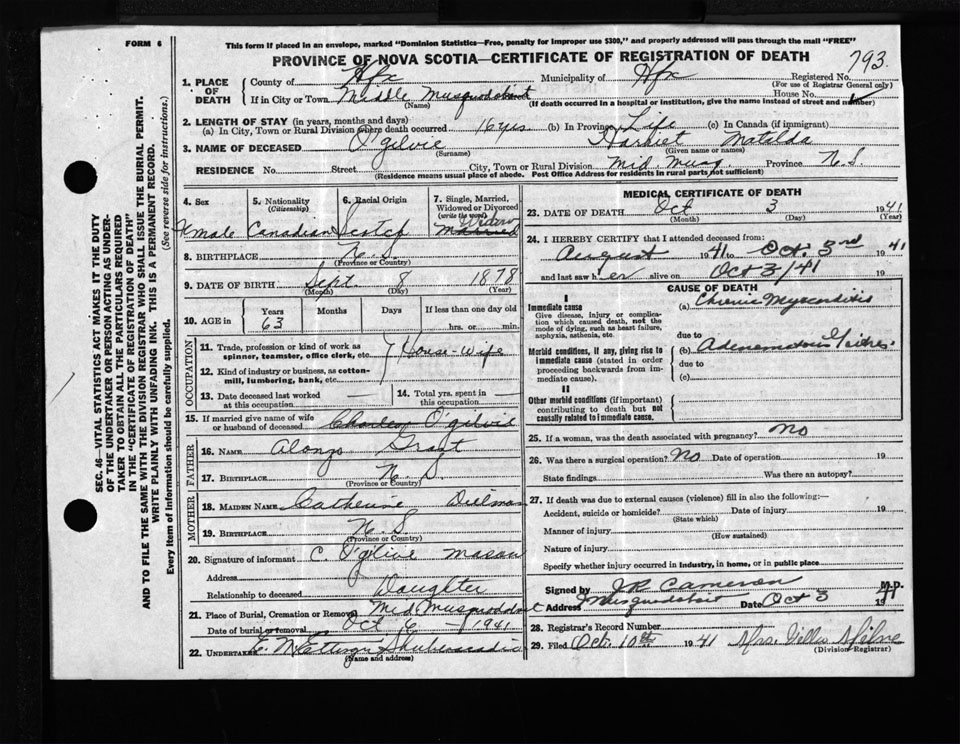 FORM 6
This form if placed in an envelope, marked "Dominion Statistics—Free, penalty for improper use $300," and properly addressed will pass through the mail "FREE"
PROVINCE OF NOVA SCOTIA—CERTIFICATE OF REGISTRATION OF DEATH
793.
1. PLACE OF DEATH
County of Hfx Municipality of Hfx Registered No.
(For use of Registrar General only)
If in City or Town Middle Musquodoboit House No.
(Name) (If death occurred in a hospital or institution, give the name instead of street and number)
2. LENGTH OF STAY (in years, months and days)
(a) In City, Town or Rural Division where death occurred 16 yrs (b) In Province Life (c) In Canada (if immigrant)
3. NAME OF DECEASED O'gilvie Harriet Matolda
(Surname) (Given name or names)
RESIDENCE No. Street City, Town or Rural Division Mid Musq Province N.S.
(Residence means usual place of abode. Post Office Address for residents in rural parts not sufficient)
4. Sex 5. Nationality 6. Racial Origin 7. Single, Married, Widowed or Divorced
(Citizenship) (write the word)
Female Canadian Scotch Married Widow
8. BIRTHPLACE N.S.
(Province or Country)
9. DATE OF BIRTH Sept. 8 1878
(Month) (Day) (Year)
10. AGE in Years Months Days If less than one day old
63 hrs. or min.
OCCUPATION
11. Trade, profession or kind of work as spinner, teamster, office clerk, etc. House-wife
12. Kind of industry or business, as cotton-mill, lumbering, bank, etc.
13. Date deceased last worked at this occupation —
14. Total yrs. spent in this occupation —
15. If married give name of wife or husband of deceased Charles O'gilvie
FATHER
16. NAME Alonzo Grant
17. BIRTHPLACE N.S.
(Province or Country)
MOTHER
18. MAIDEN NAME Catherine Dilman
19. BIRTHPLACE N.S
(Province or Country)
20. Signature of informant C. O'gilvie Mason
Address
Relationship to deceased Daughter
21. Place of Burial, Cremation or Removal Mid Musquodoboit
Date of burial or removal Oct 6 — 1941
22. UNDERTAKER Ettinger Shubenacadie
(Name and address)
MEDICAL CERTIFICATE OF DEATH
23. DATE OF DEATH Oct 3 1941
(Month) (Day) (Year)
24. I HEREBY CERTIFY that I attended deceased from:
August 1941 to Oct. 3rd 1941
and last saw her alive on Oct 3/41 19
CAUSE OF DEATH
I
Immediate cause
Give disease, injury or complication which caused death, not the mode of dying, such as heart failure, asphyxia, asthenia, etc.
(a) Chronic Myocarditis
due to
Morbid conditions, if any, giving rise to immediate cause (stated in order proceeding backwards from immediate cause).
(b) Adenomatous Goitre.
due to
(c)
II
Other morbid conditions (if important) contributing to death but not causally related to immediate cause.
25. If a woman, was the death associated with pregnancy? No
26. Was there a surgical operation? No Date of operation 19
State findings Was there an autopsy?
27. If death was due to external causes (violence) fill in also the following:—
Accident, suicide or homicide? Date of injury 19
(State which)
Manner of injury
(How sustained)
Nature of injury
Specify whether injury occurred in industry, in home, or in public place
Signed by J.R. Cameron M.D.
Address Musquodoboit Date Oct 3 1941
28. Registrar's Record Number
29. Filed Oct. 10th 1941 Mrs. Willis Milne
(Division Registrar)
SEC. 46—VITAL STATISTICS ACT MAKES IT THE DUTY
OF THE UNDERTAKER OR PERSON ACTING AS UNDER-
TAKER TO OBTAIN ALL THE PARTICULARS REQUIRED
IN THE "CERTIFICATE OF REGISTRATION OF DEATH"
AND TO FILE THE SAME WITH THE DIVISION REGISTRAR WHO SHALL ISSUE THE BURIAL PERMIT.
WRITE PLAINLY WITH UNFADING INK. THIS IS A PERMANENT RECORD.
Every item of information should be carefully supplied. (See reverse side for instructions.)